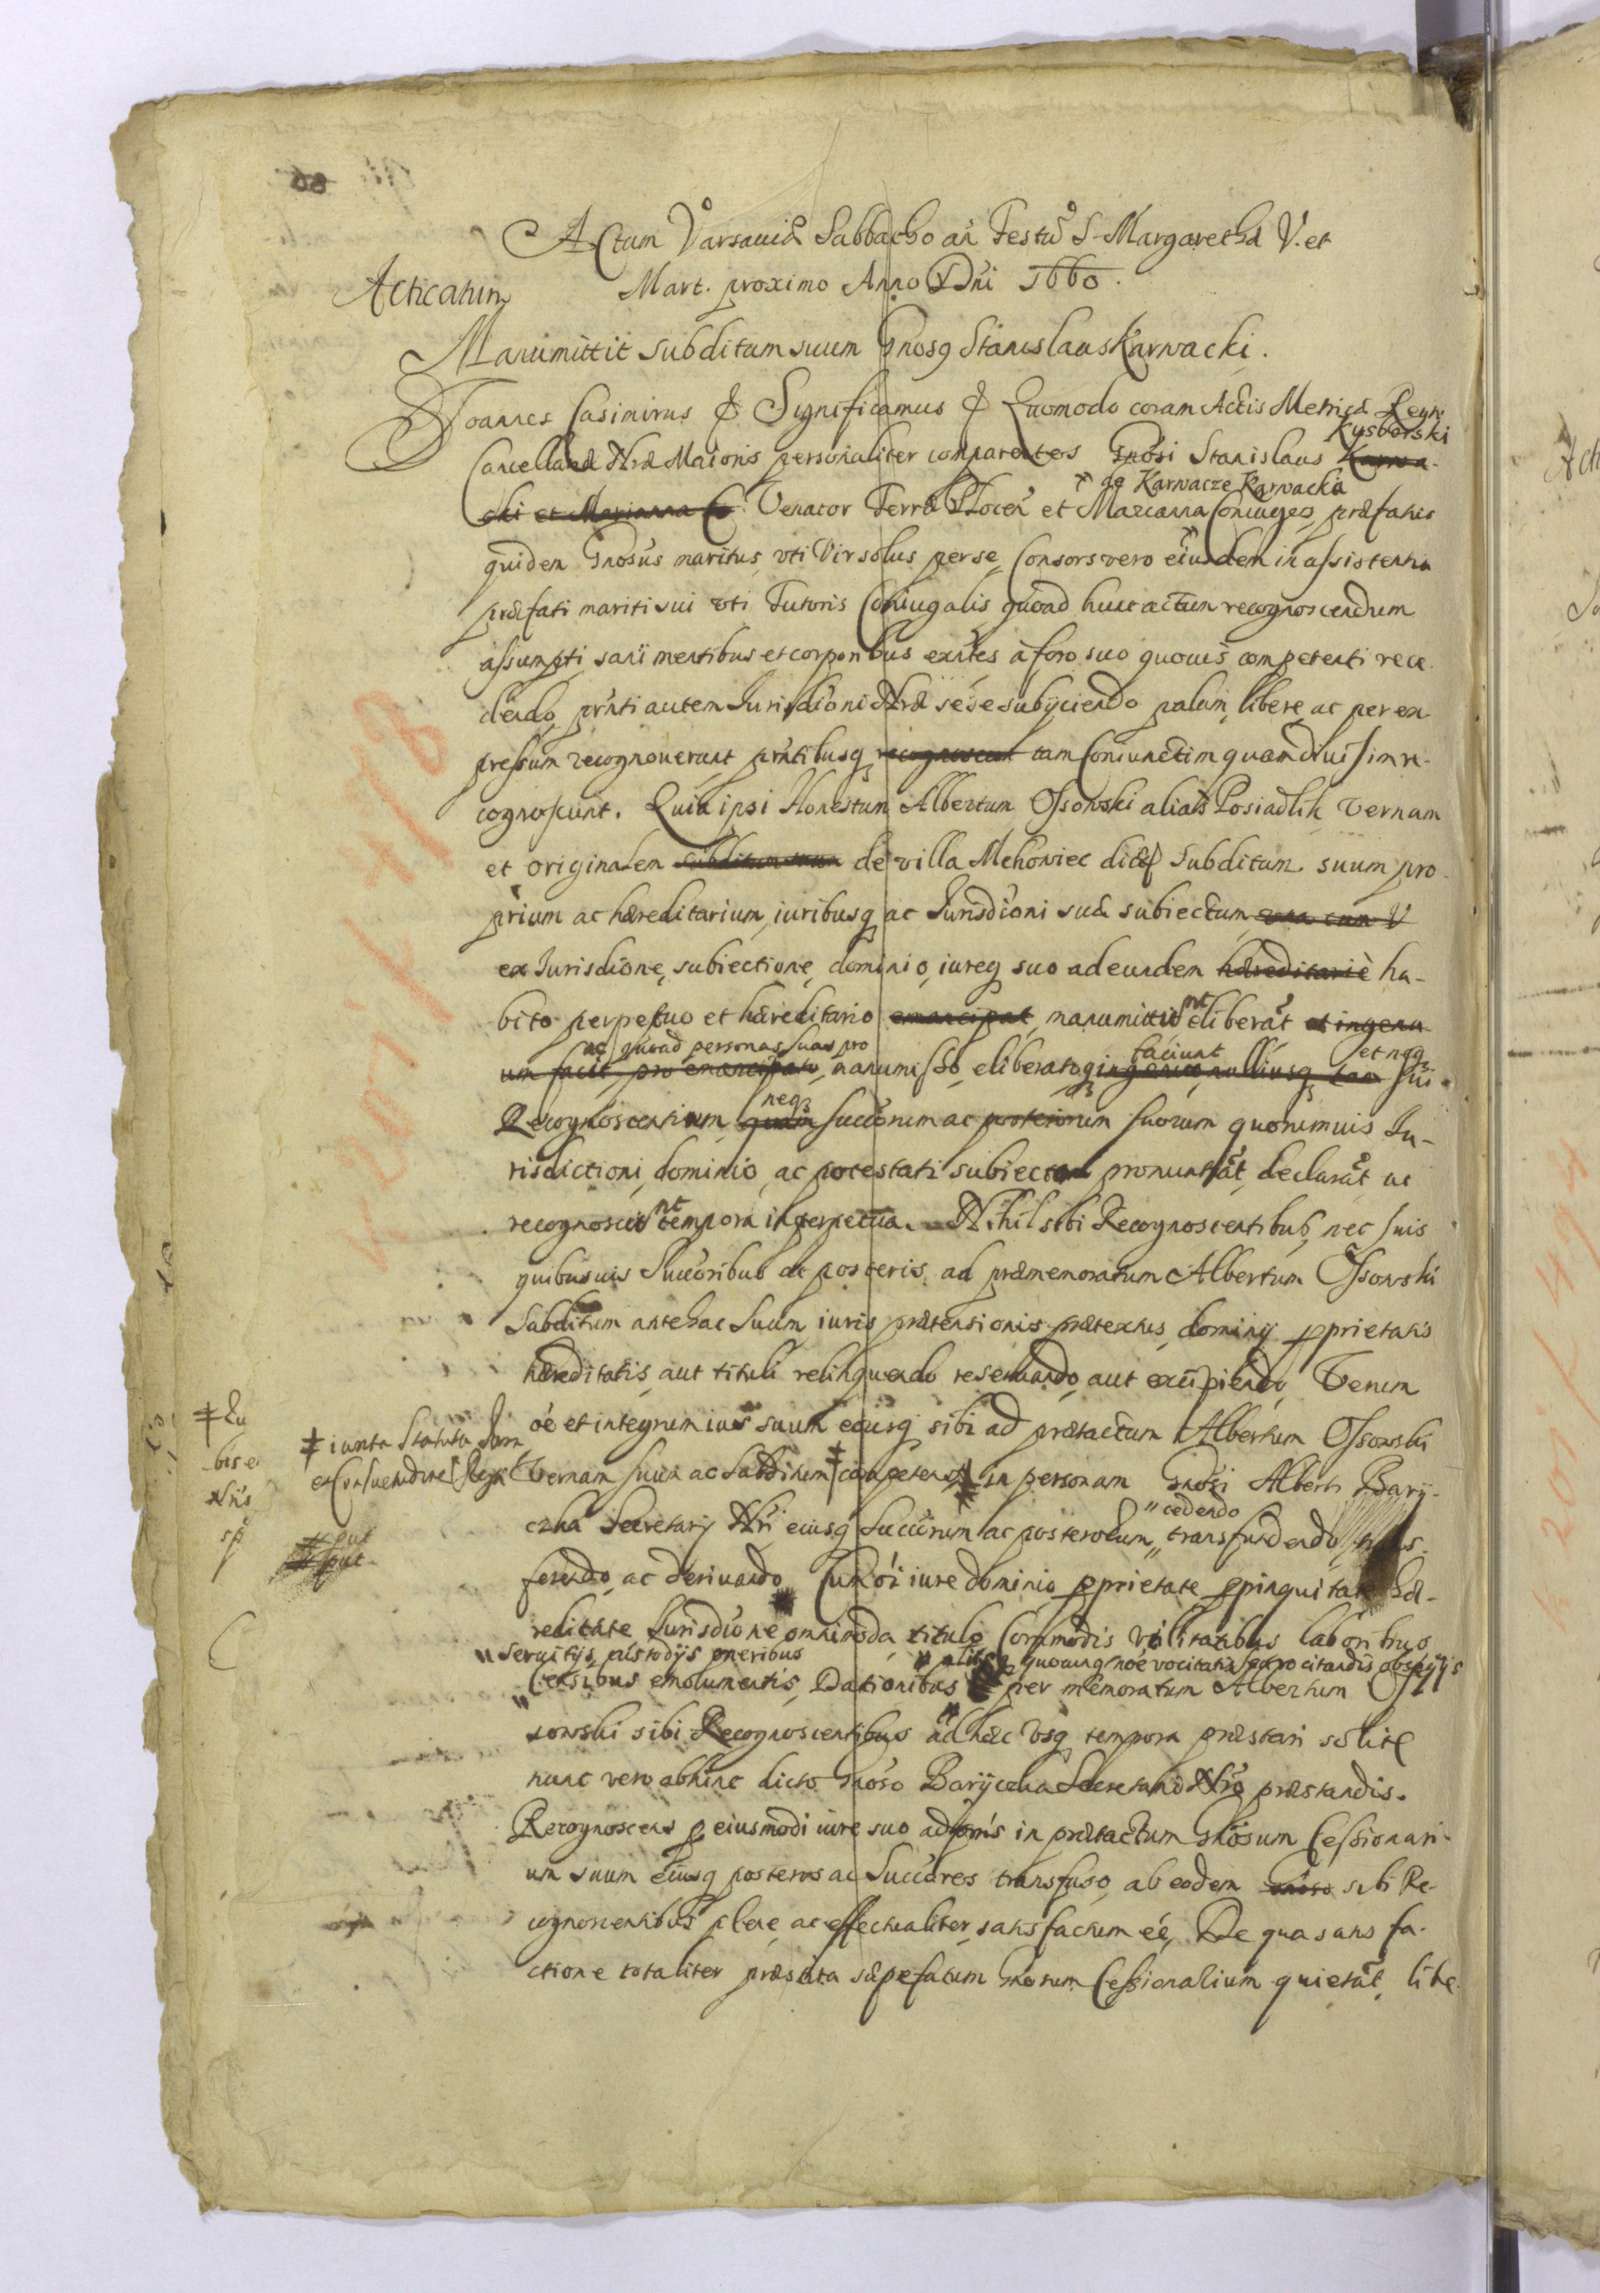 Actum Varsaviæ Sabbatho añ Festũ S. Margarethæ V. et
Mart. proximo Anno Dñi 1660.
Acticatum
Manumittit subditum suum Gnosq Stanislaus Karwacki.
Joannes Casimirus & Significamus & Quomodo coram Actis Metrices Regni
Kysborski
Cancellariæ Nræ Maioris personaliter comparentes Gnosi Stanislaus Karwa-
de Karwacze Karwacka
cki et Marianna Co Venator Terræ Plocen et Marianna Coniuges, præfatus
quidem Gnosus maritus, vti Vir solus per se, Consors vero eiusdem in assistentia
præfati mariti sui vti Tutoris Coniugalis quoad hunc actum recognoscendum
assumpti, sani mentibus et corporibus exntes à foro suo quovis competenti rece-
dendo, prnti autem Jurisdioni Nræ sese subyciendo palam, libere, ac per ex-
pressum recognoverunt prntibusq recognoscunt tam Coniunctim quam divisim re-
cognoscunt. Quia ipsi Honestum Albertum Ossowski alias Posiadlik Vernam
et originalem subditum suum de villa Mehowiec dictum Subditum suum pro-
prium ac hæreditarium, iuribusq ac Jurisdioni suæ subiectum, una cum V
ex Jurisdione, subiectione, dominio, iureq suo ad eundem hæreditariè ha-
bito perpetuo et hæreditario emancipat manumittit nt eliberat et ingenu-
ac quoad personas suas pro
faciunt
et neq
um facit, pro emancipato, manumisso, eliberatoq ingenuo, nulliusq tam sui
neq
Recognoscentium, quàm succorum ac posteriorum suorum quorumvis Ju-
risdictioni, dominio, ac potestati subiectum pronuntiat, declarat ac
recognoscit nt tempora in perpetua. Nihil sibi Recognoscentibus, nec suis
quibusvis Succoribus ac posteris, ad præmemoratum Albertum Ossowski
Subditum antehac Suum iuris prætensionis prætextus, dominy pprietatis
hæreditatis, aut tituli relinquendo reservando, aut excipiendo. Verum
oé et integrum ius suum eiusq sibi ad prætactum Albertum Ossowski
‡ iuxta Statuta
et Consuetudines Regni
Vernam suum ac Subditum ‡ competens in personam Gnosi Alberti Bary-
cedendo
czka Secretary Nri eiusq Succorum ac posterorum, transfundendo trans-
ferendo, ac derivando Cum oi iure dominio pprietate ppinquitate hæ-
reditate Jurisdione omnimoda titulo Commodis vtilitatibus laboribus
servitijs custodijs oneribus
alijsq quocunq noe vocitatis et vocitandis obsequijs
Censibus emolumentis, Dationibus per memoratum Albertum Os-
sowski sibi Recognoscentibus ad hæc vsq tempora præstari solitis
nunc vero abhinc dicto Gnoso Baryczka Secretario Nro præstandis.
Recognoscens p eiusmodi iure suo ad prns in prætactum Gnosum Cessionari-
um suum eiusq posteros ac Succores transfuso, ab eodem Gnoso sibi Re-
cognoscentibus plene, ac effectualiter, satisfactum eé, De qua satisfa-
ctione totaliter præstita sæpefatum Gnosum Cessionalium quietat, libe-